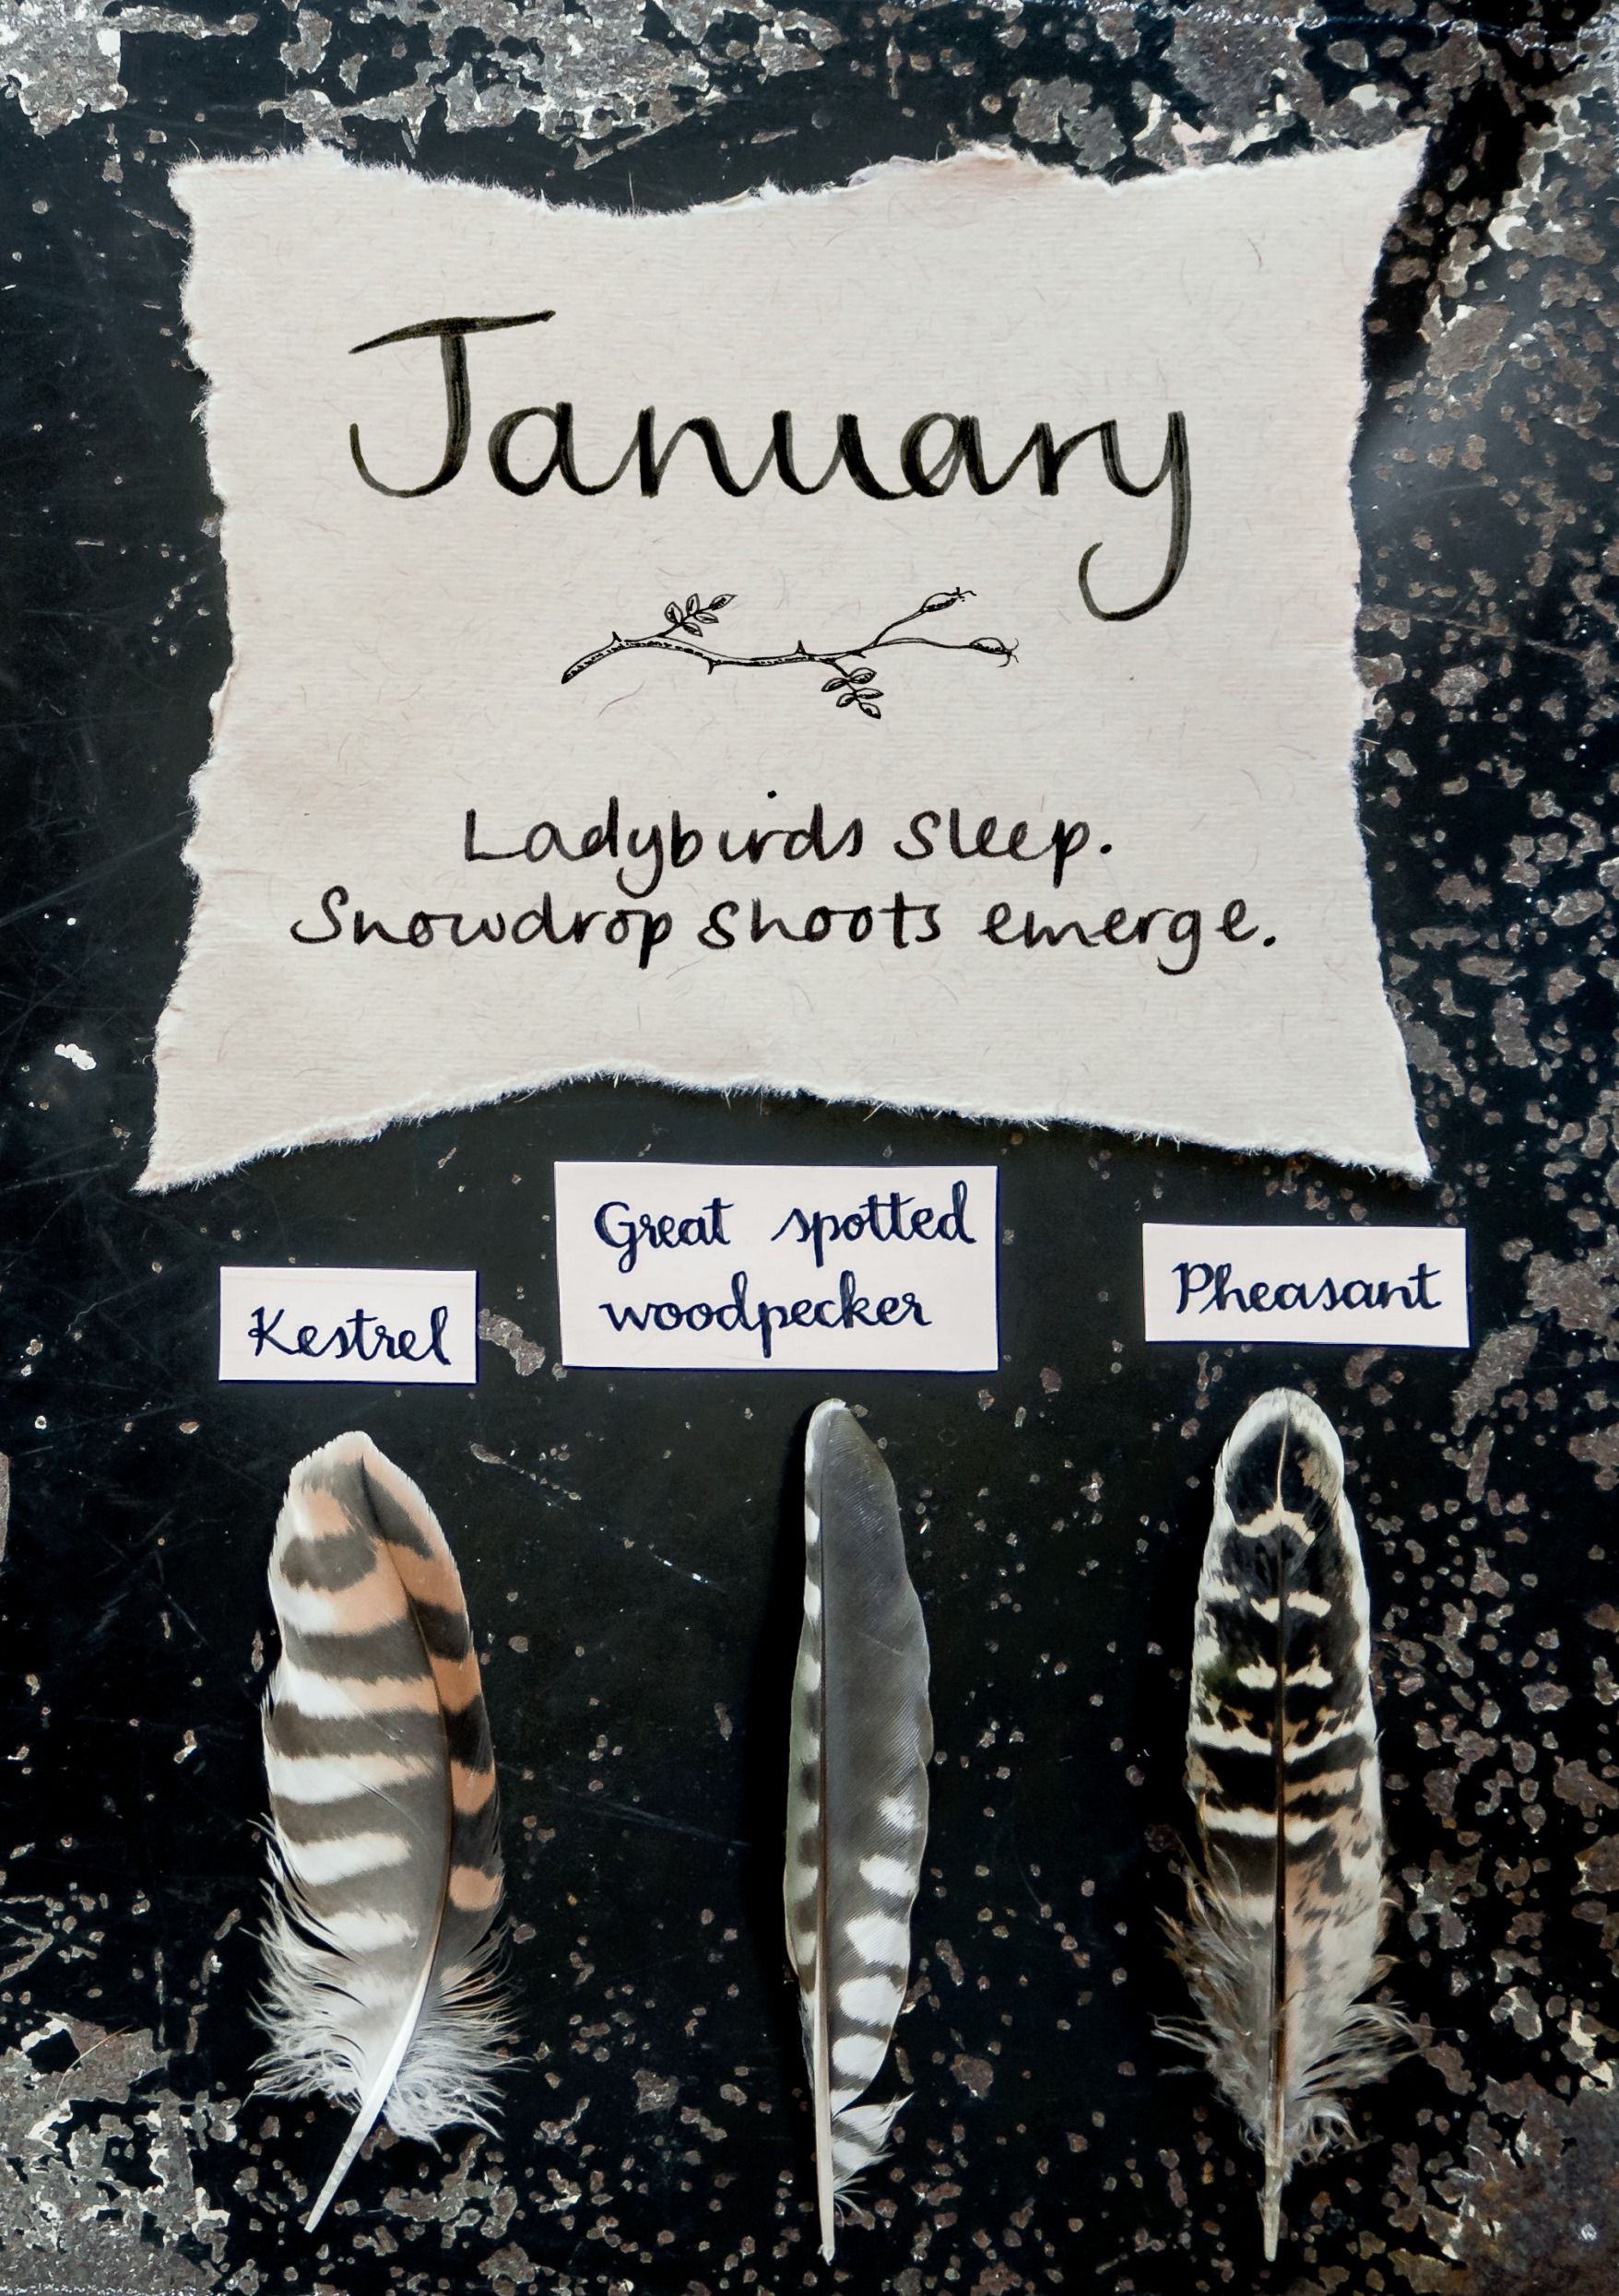 January
Ladybirds sleep.
Snowdrop shoots emerge.
Kestrel
Great spotted
woodpecker
Pheasant